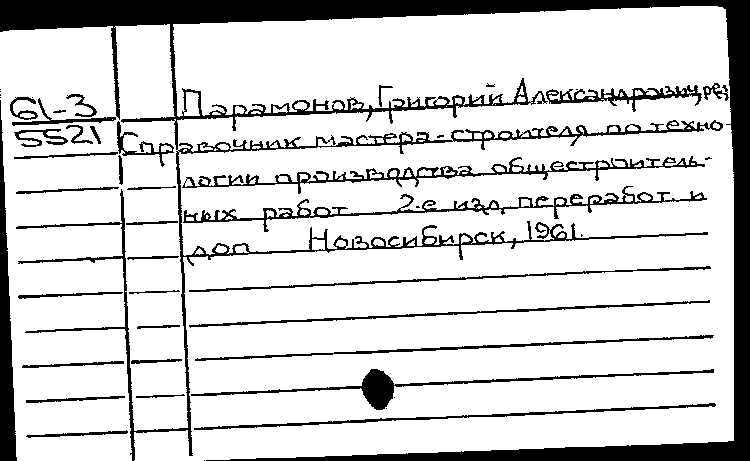 61-3
5521
Парамонов, Григорий Александрович, ред.
Справочник мастера-строителя по техно-
логии производства общестроитель-
ных работ 2-е изд, переработ. и
доп Новосибирск, 1961.